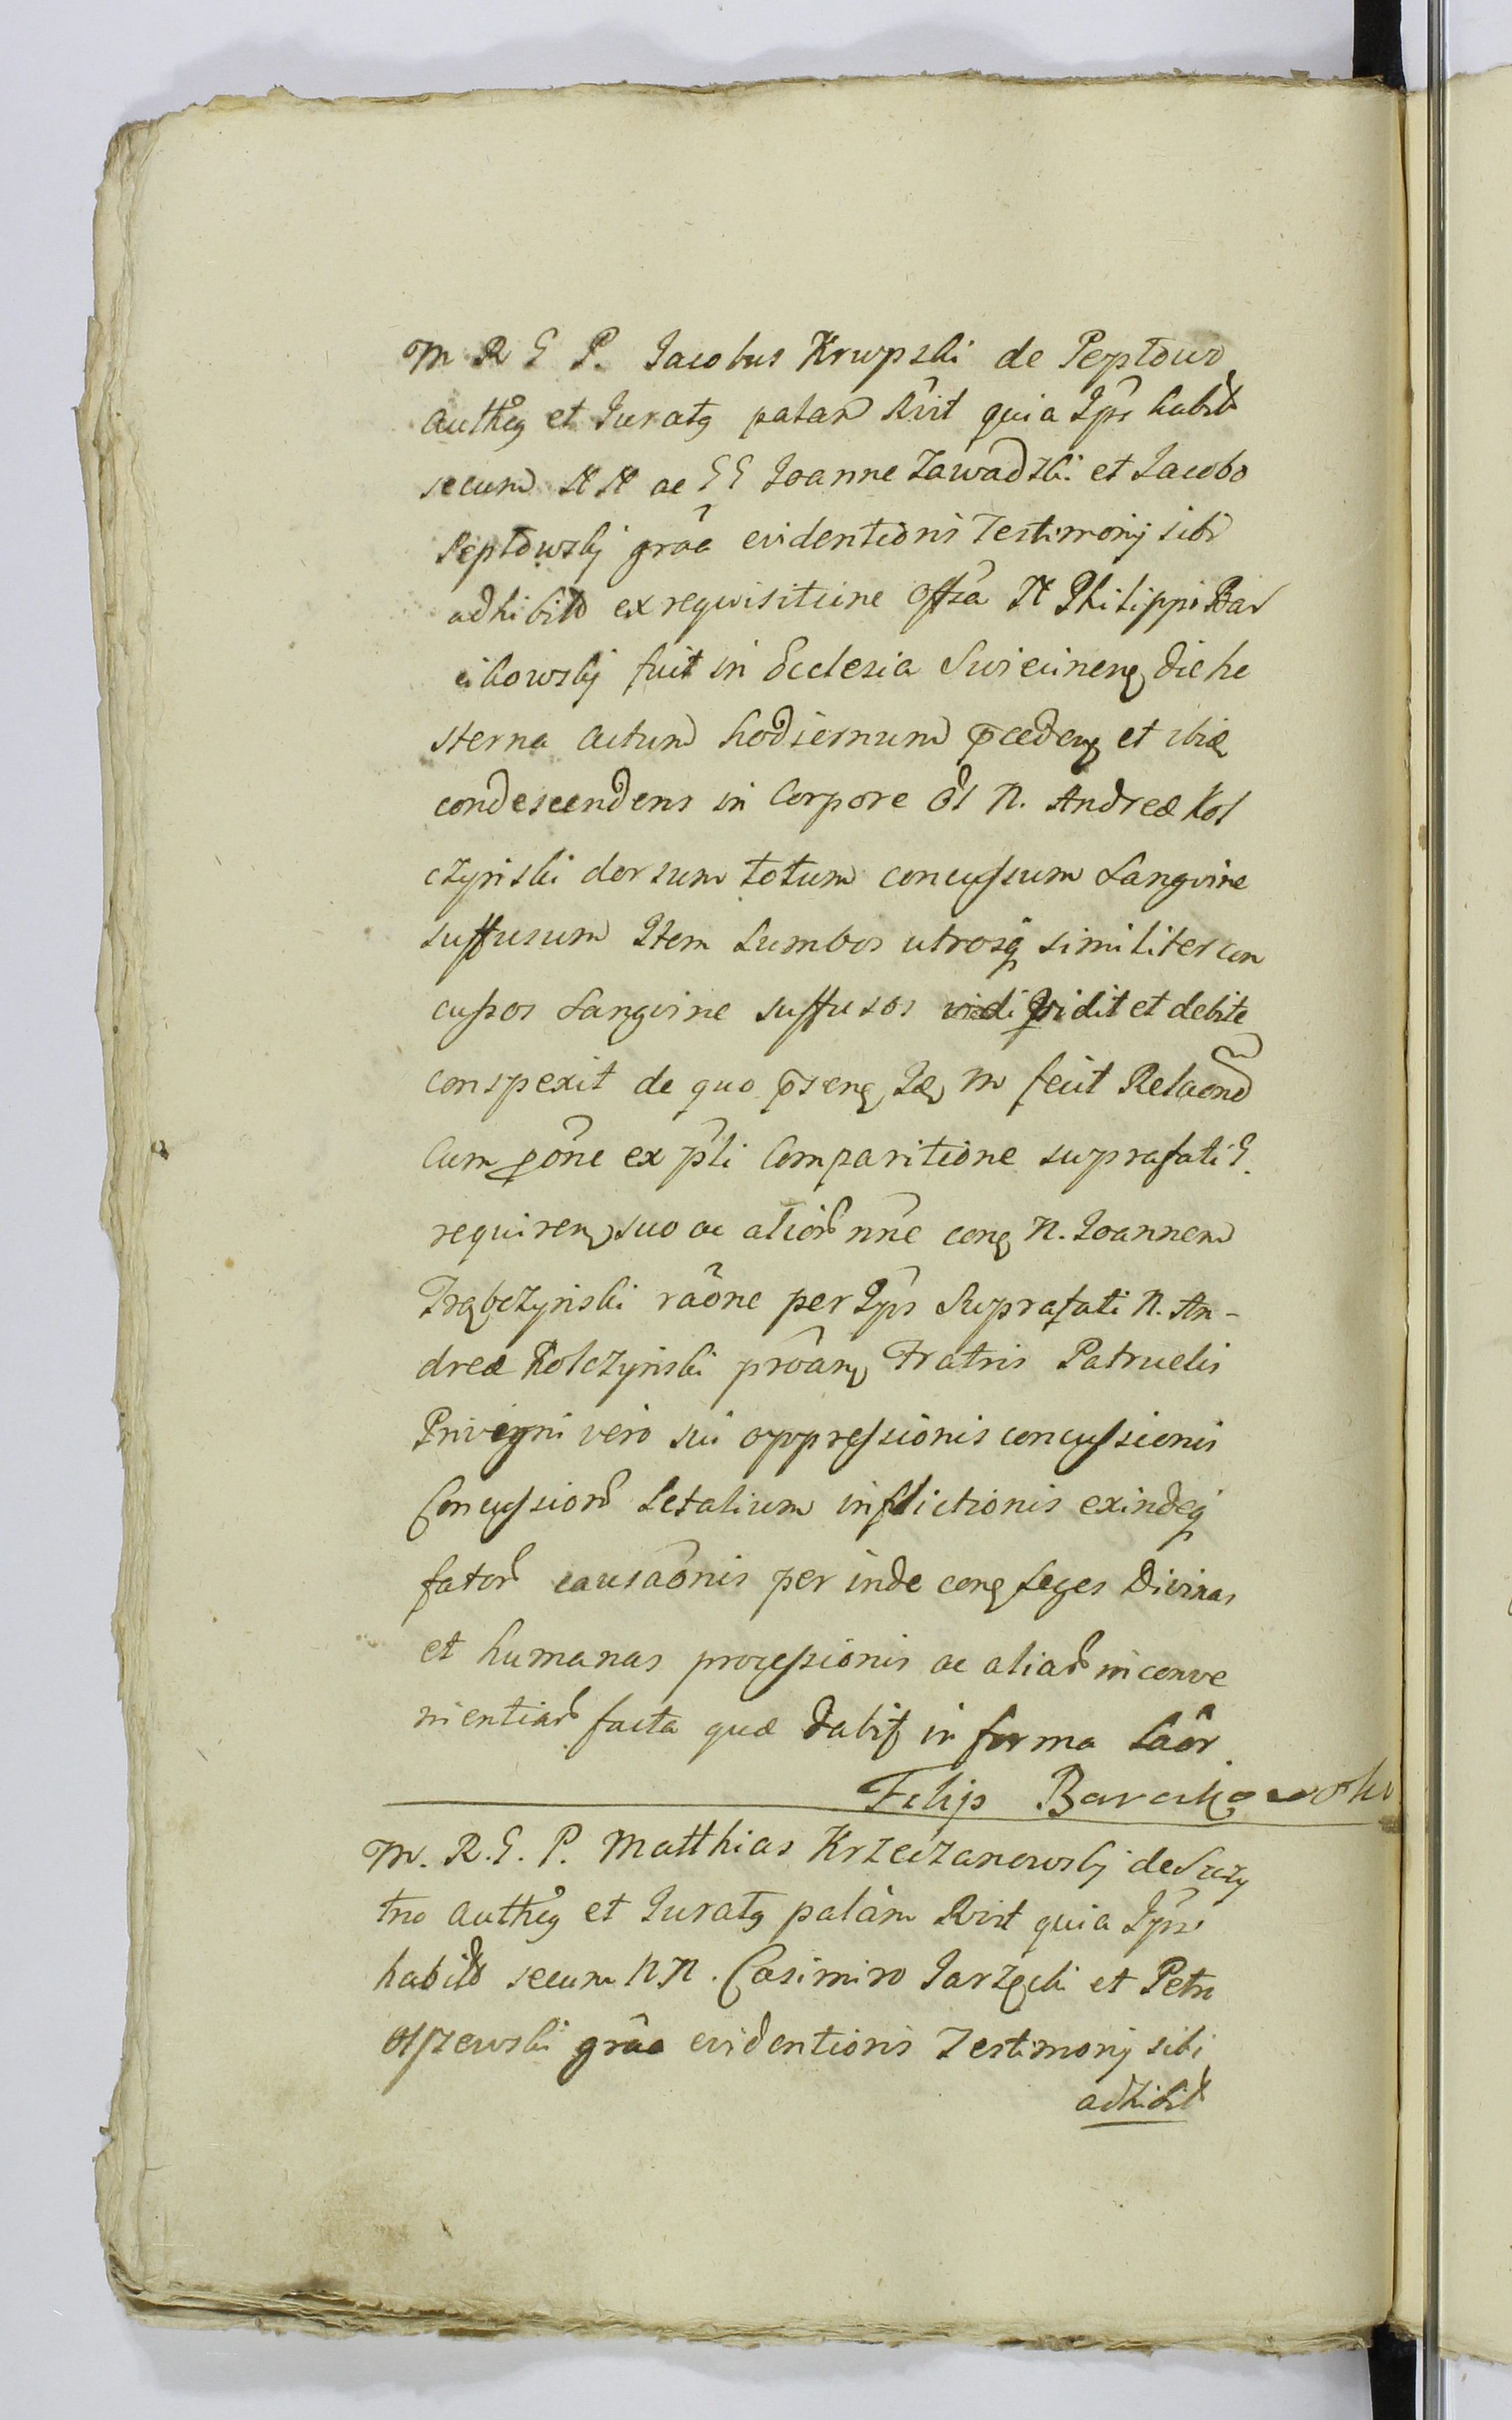 M R G P. Iacobus Krupski de Peptowo
authęg et Iuratg palam Rvit quia Ipse habitt
secum NN ac GG Ioanne Zawadzki et Iacobo
Peptowskj grãa evidentioris Testimonij sibi
adhibitt ex requisitione offsa N Philippi Bar
cikowskj fuit in Ecclesia Swiecineng die he
sterna actum hodiernum pcedeng et ibig
condescendens in Corpore ol N. Andreæ Kol
czynski dorsum totum concussum Sangvine
suffusum Item Lumbos utrosq similiter con
cussos Sangvine suffusos vidit et debite
conspexit de quo pseng Iag M fecit Relaõnem
Cum põne ex pli Comparitione suprafati G.
requireng suo ac alior nñe cong N. Ioannem
Trąbczynski raõne per Ipm Suprafati N. An-
dreæ Kolczynski proãng Fratris Patruelis
Privigni vero sui oppressionis concussionis
Concussion Letalium inflictionis exindeq
fator causaõnis per inde cong Leges Divinas
et humanas processionis ac aliar inconve
nientiar facta quæ dabit in forma Laõr
Filip Barcikowski
M. R. G. P. Matthias Krzeczanowskj de Szczy
tno authęg et Iuratg palam Rvit quia Ipse
habitt secum NN. Casimiro Iarzęcki et Petro
Olszewski grãa evidentioris Testimonij sibi
adhibitt